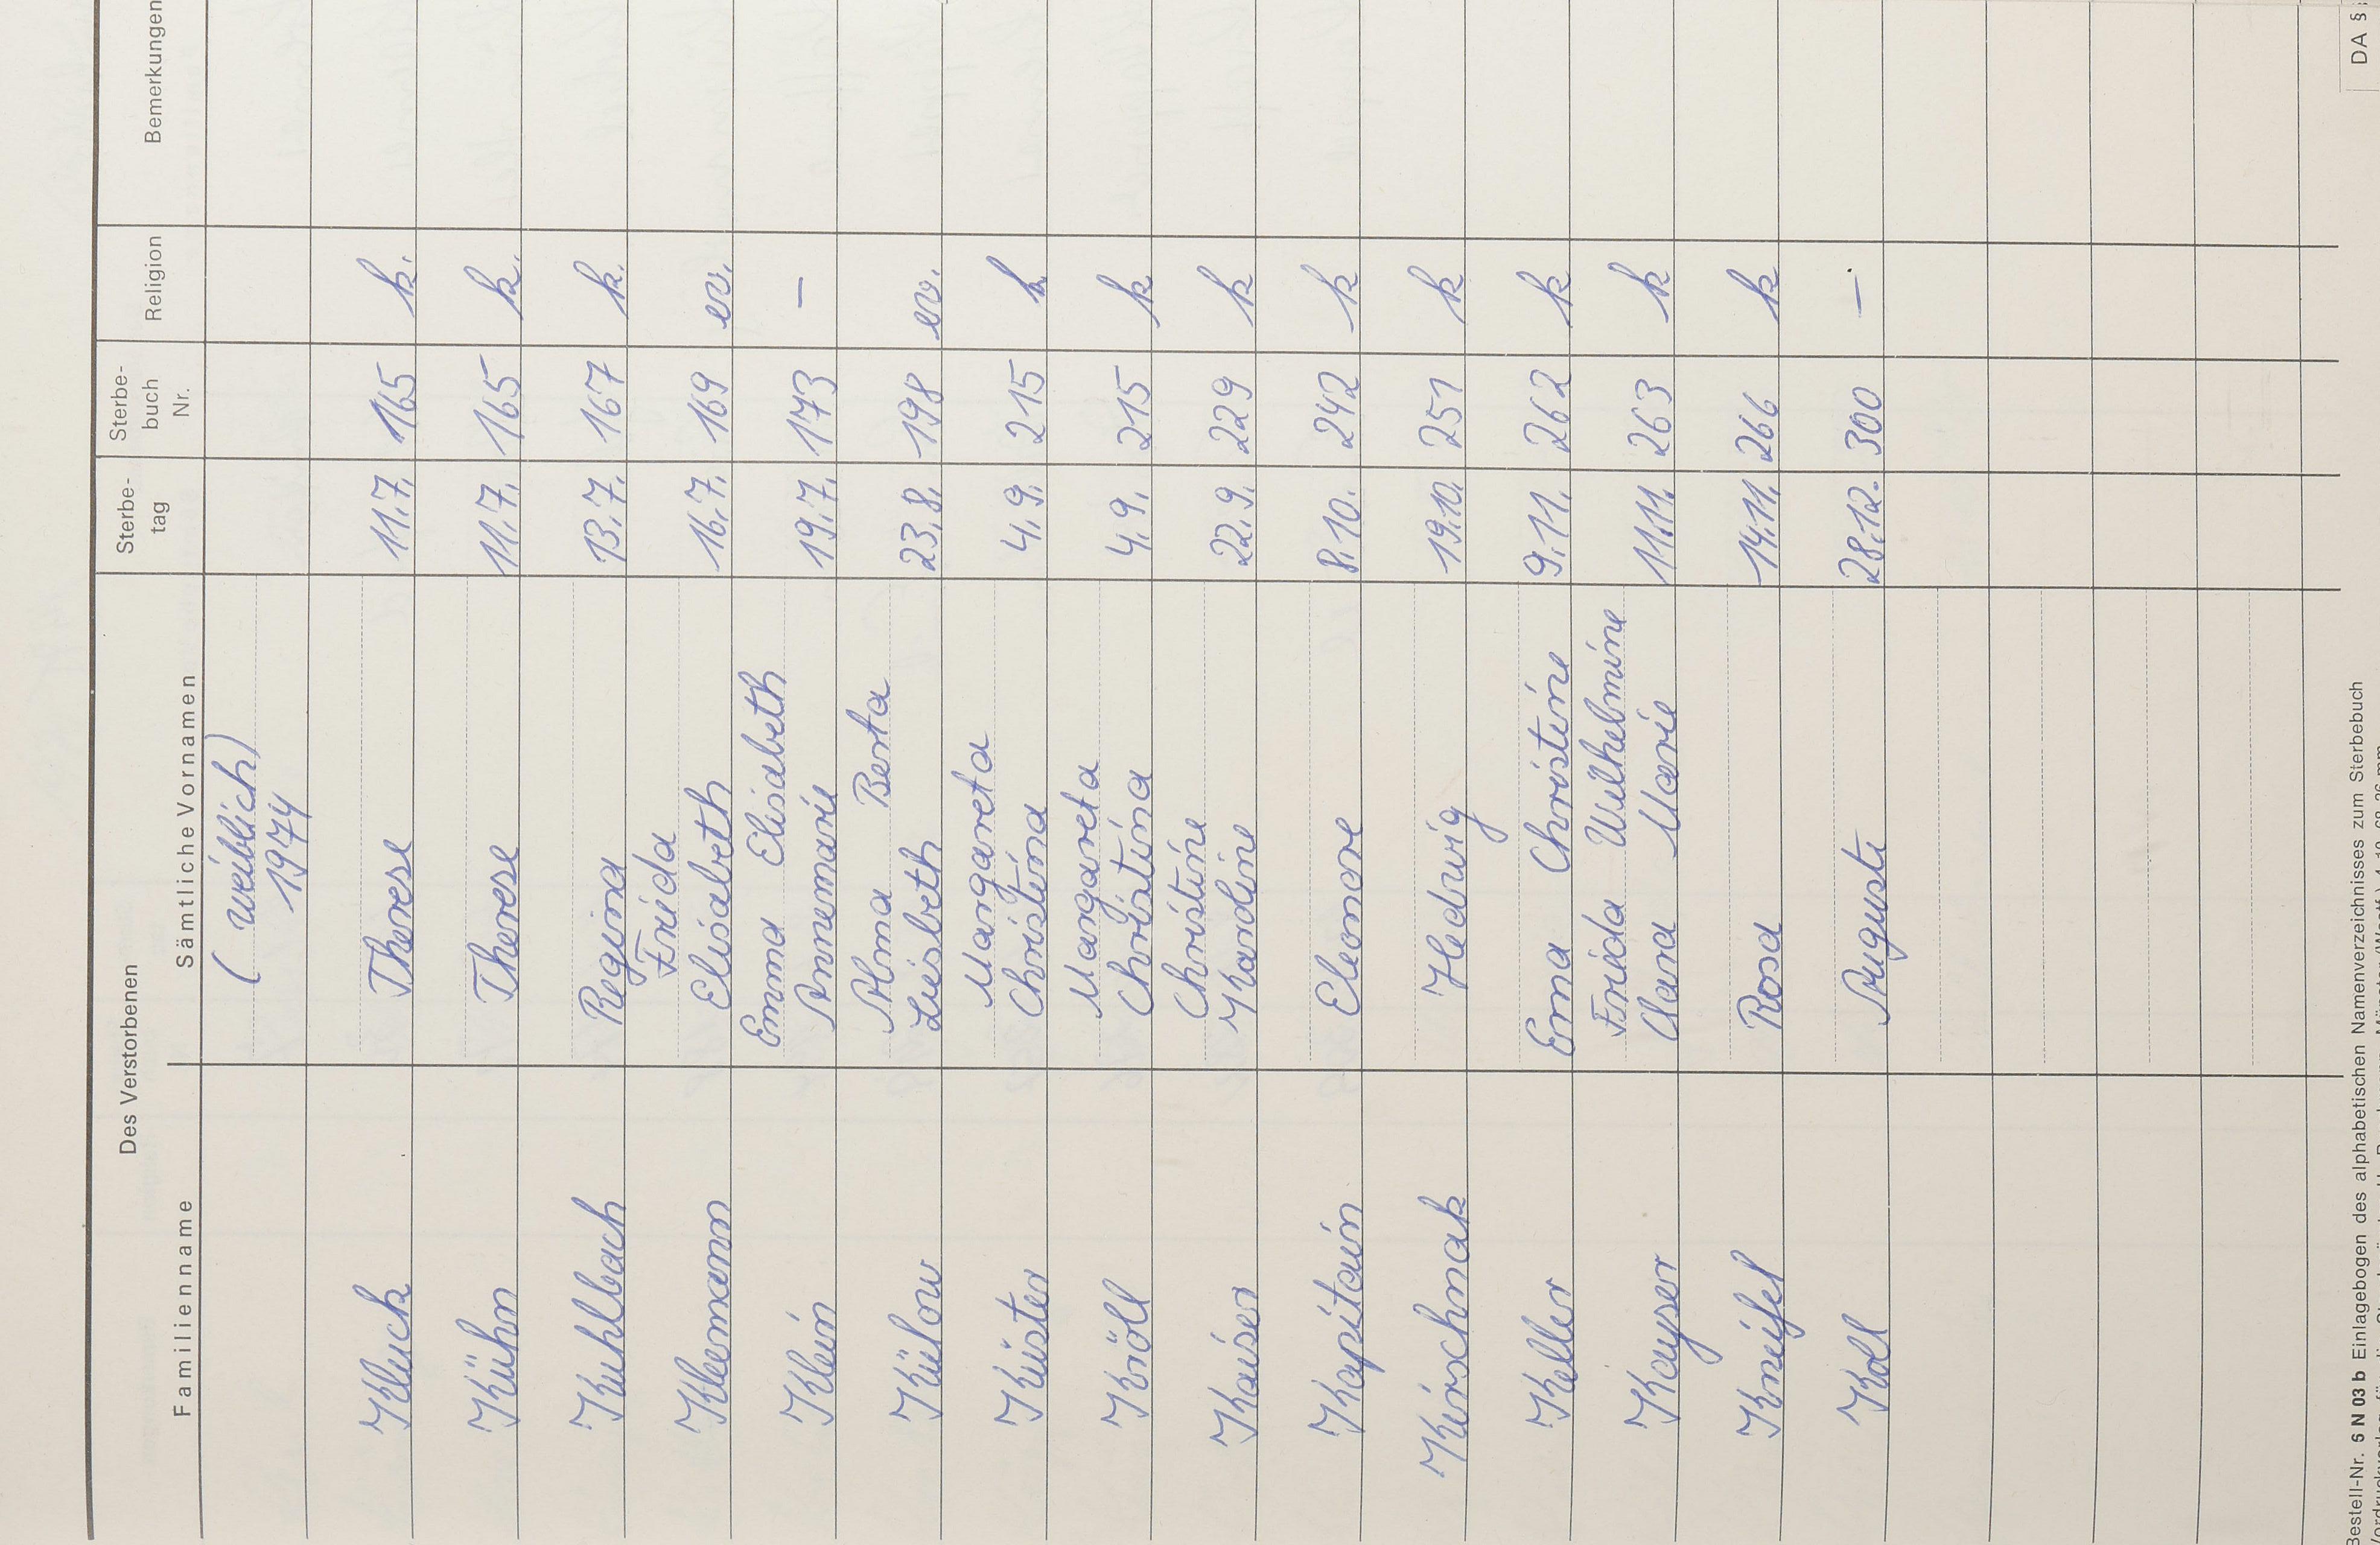 Des Verstorbenen
Familienname Sämtliche Vornamen Sterbe-tag Sterbe-buch Nr. Religion Bemerkungen
( weiblich)
1974
Kluck Therese 11.7. 165 k.
Kühn Therese 11.7. 165 k.
Kuhlbach Regina 13.7. 167 k.
Frieda
Kleemann Elisabeth 16.7. 169 ev.
Emma Elisabeth
Klein Annemarie 19.7. 173 –
Alma Berta
Külow Liesbeth 23.8. 198 ev.
Margareta
Küster Christina 4.9. 215 k
Margareta
Kröll Christina 4.9. 215 k
Christine
Kaiser Karoline 22.9. 229 k
Kapitain Eleonore 8.10. 242 k
Kirschmak Hedwig 19.10. 251 k
Keller Erna Christine 9.11. 262 k
Frieda Wilhelmine
Kayser Clara Marie 11.11. 263 k
Kneifel Rosa 14.11. 266 k
Koll Auguste 28.12. 300 –
Bestell-Nr. S N 03 b Einlagebogen des alphabetischen Namenverzeichnisses zum Sterbebuch
DA §